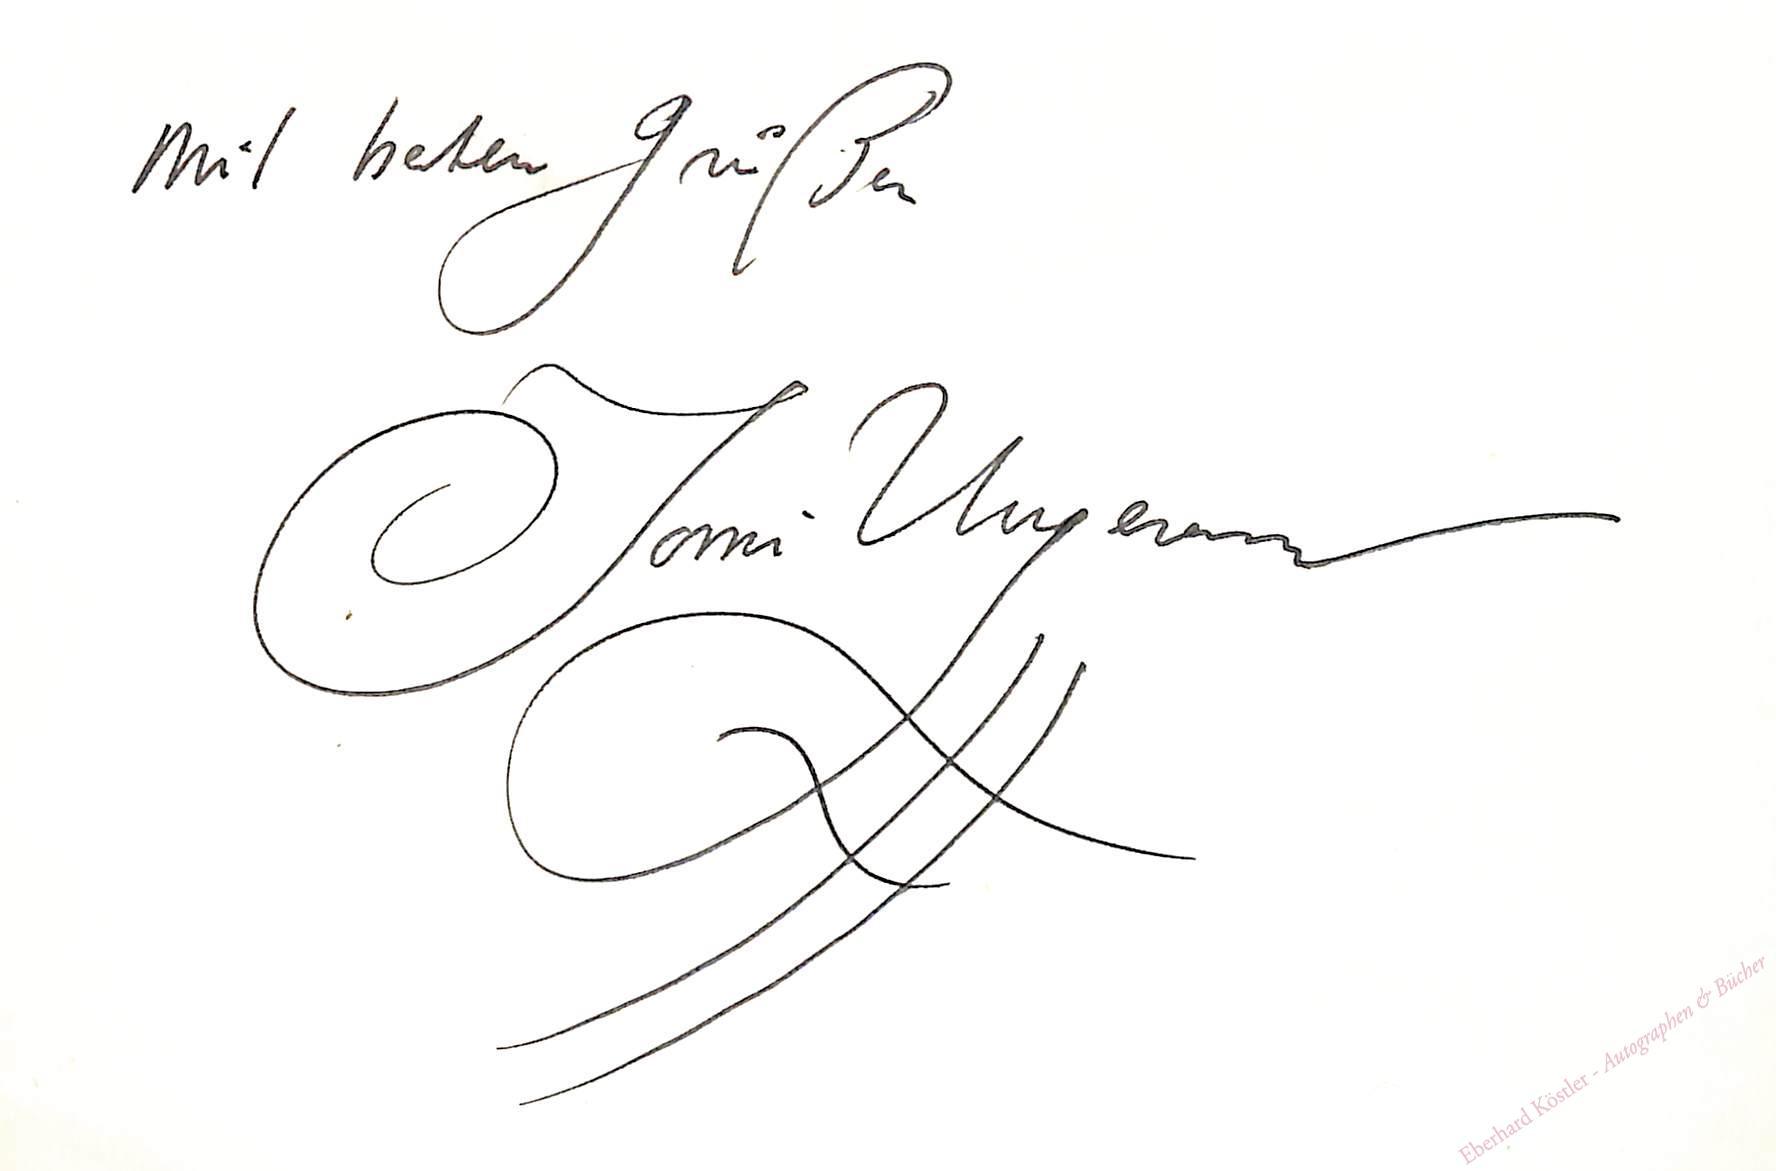 Mit besten Grüßen
Tomi Ungerer
Eberhard Köstler - Autographen & Bücher